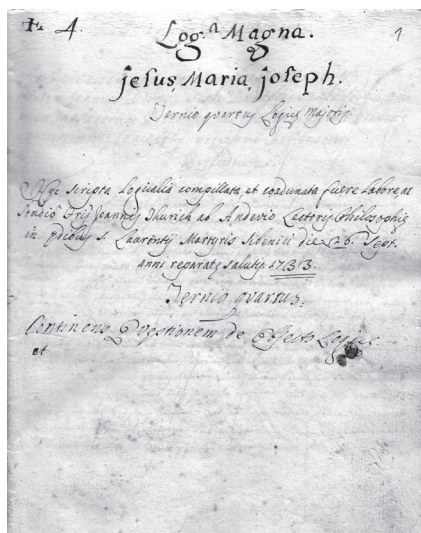 F. 4. Log.ª Magna. 1
&
jesus, Maria, joseph.
Ternio quartus Logicę Majoris
Hęc scripta Logicalia compillata, et coadunata fuere labore, ac
studio Fris Joannis Jhurich ab Andevio Lectoris Philosophię
in S. Laurentij Martyris Sibenici die 26. Sept.
anni reparatę salutis 1733.
Ternio quartus.
Continens Quęstionem de Objecto Logicę
et